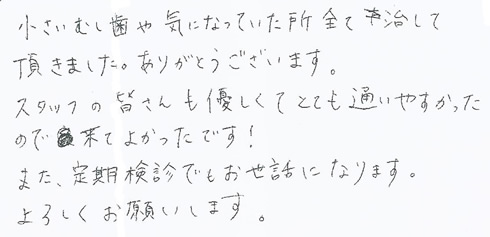 小さいむし歯や気になっていた所全て治して
頂きました。ありがとうございます。
スタッフの皆さんも優しくてとても通いやすかった
ので来てよかったです!
また、定期検診でもお世話になります。
よろしくお願いします。